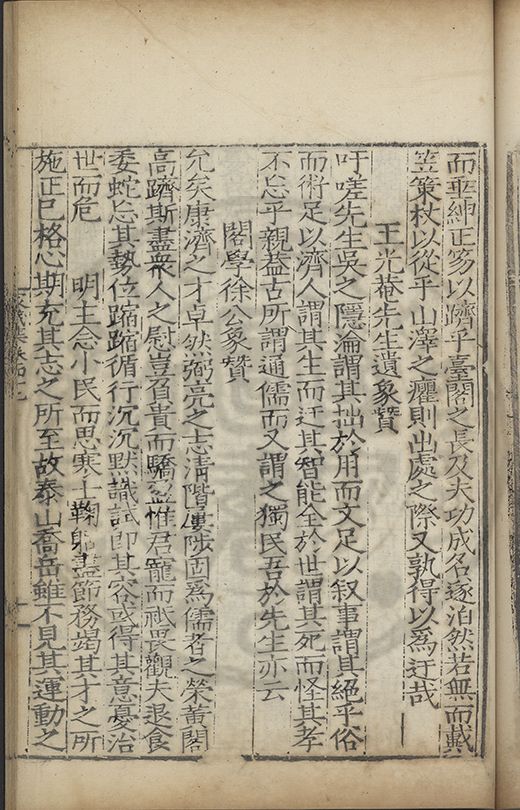 而垂紳正笏以躋乎臺閣之長及夫功成名遂泊然若無而戴
笠策杖以從乎山澤之癯則出處之際又孰得以爲迂哉
王光菴先生遺象贊
吁嗟先生吳之隱淪謂其拙於用而文足以叙事謂其絕乎俗
而術足以濟人謂其生而迂其智能全於世謂其死而怪其孝
不忘乎親葢古所謂通儒而又謂之獨民吾於先生亦云
閣學徐公象贊
允矣康濟之才卓然弼亮之志清階屢陟固爲儒者之榮黄閣
高躋斯盡衆人之慰豈肎貴而驕益惟君寵而祗畏觀夫退食
委蛇忘其勢位蹜蹜循行沉沉默識試即其容或得其意憂治
世而危 明主念小民而思寒士鞠躬盡節務竭其才之所
施正已格心期充其志之所至故泰山喬岳雖不見其運動之